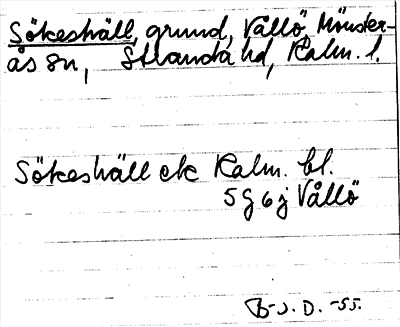 Sökeshäll, grund, Vållö, Mönster-
ås sn, Stranda hd, Kalm. l.
Sökeshäll ek Kalm. bl.
5 g 6 j Vållö
B-J. D. -55.